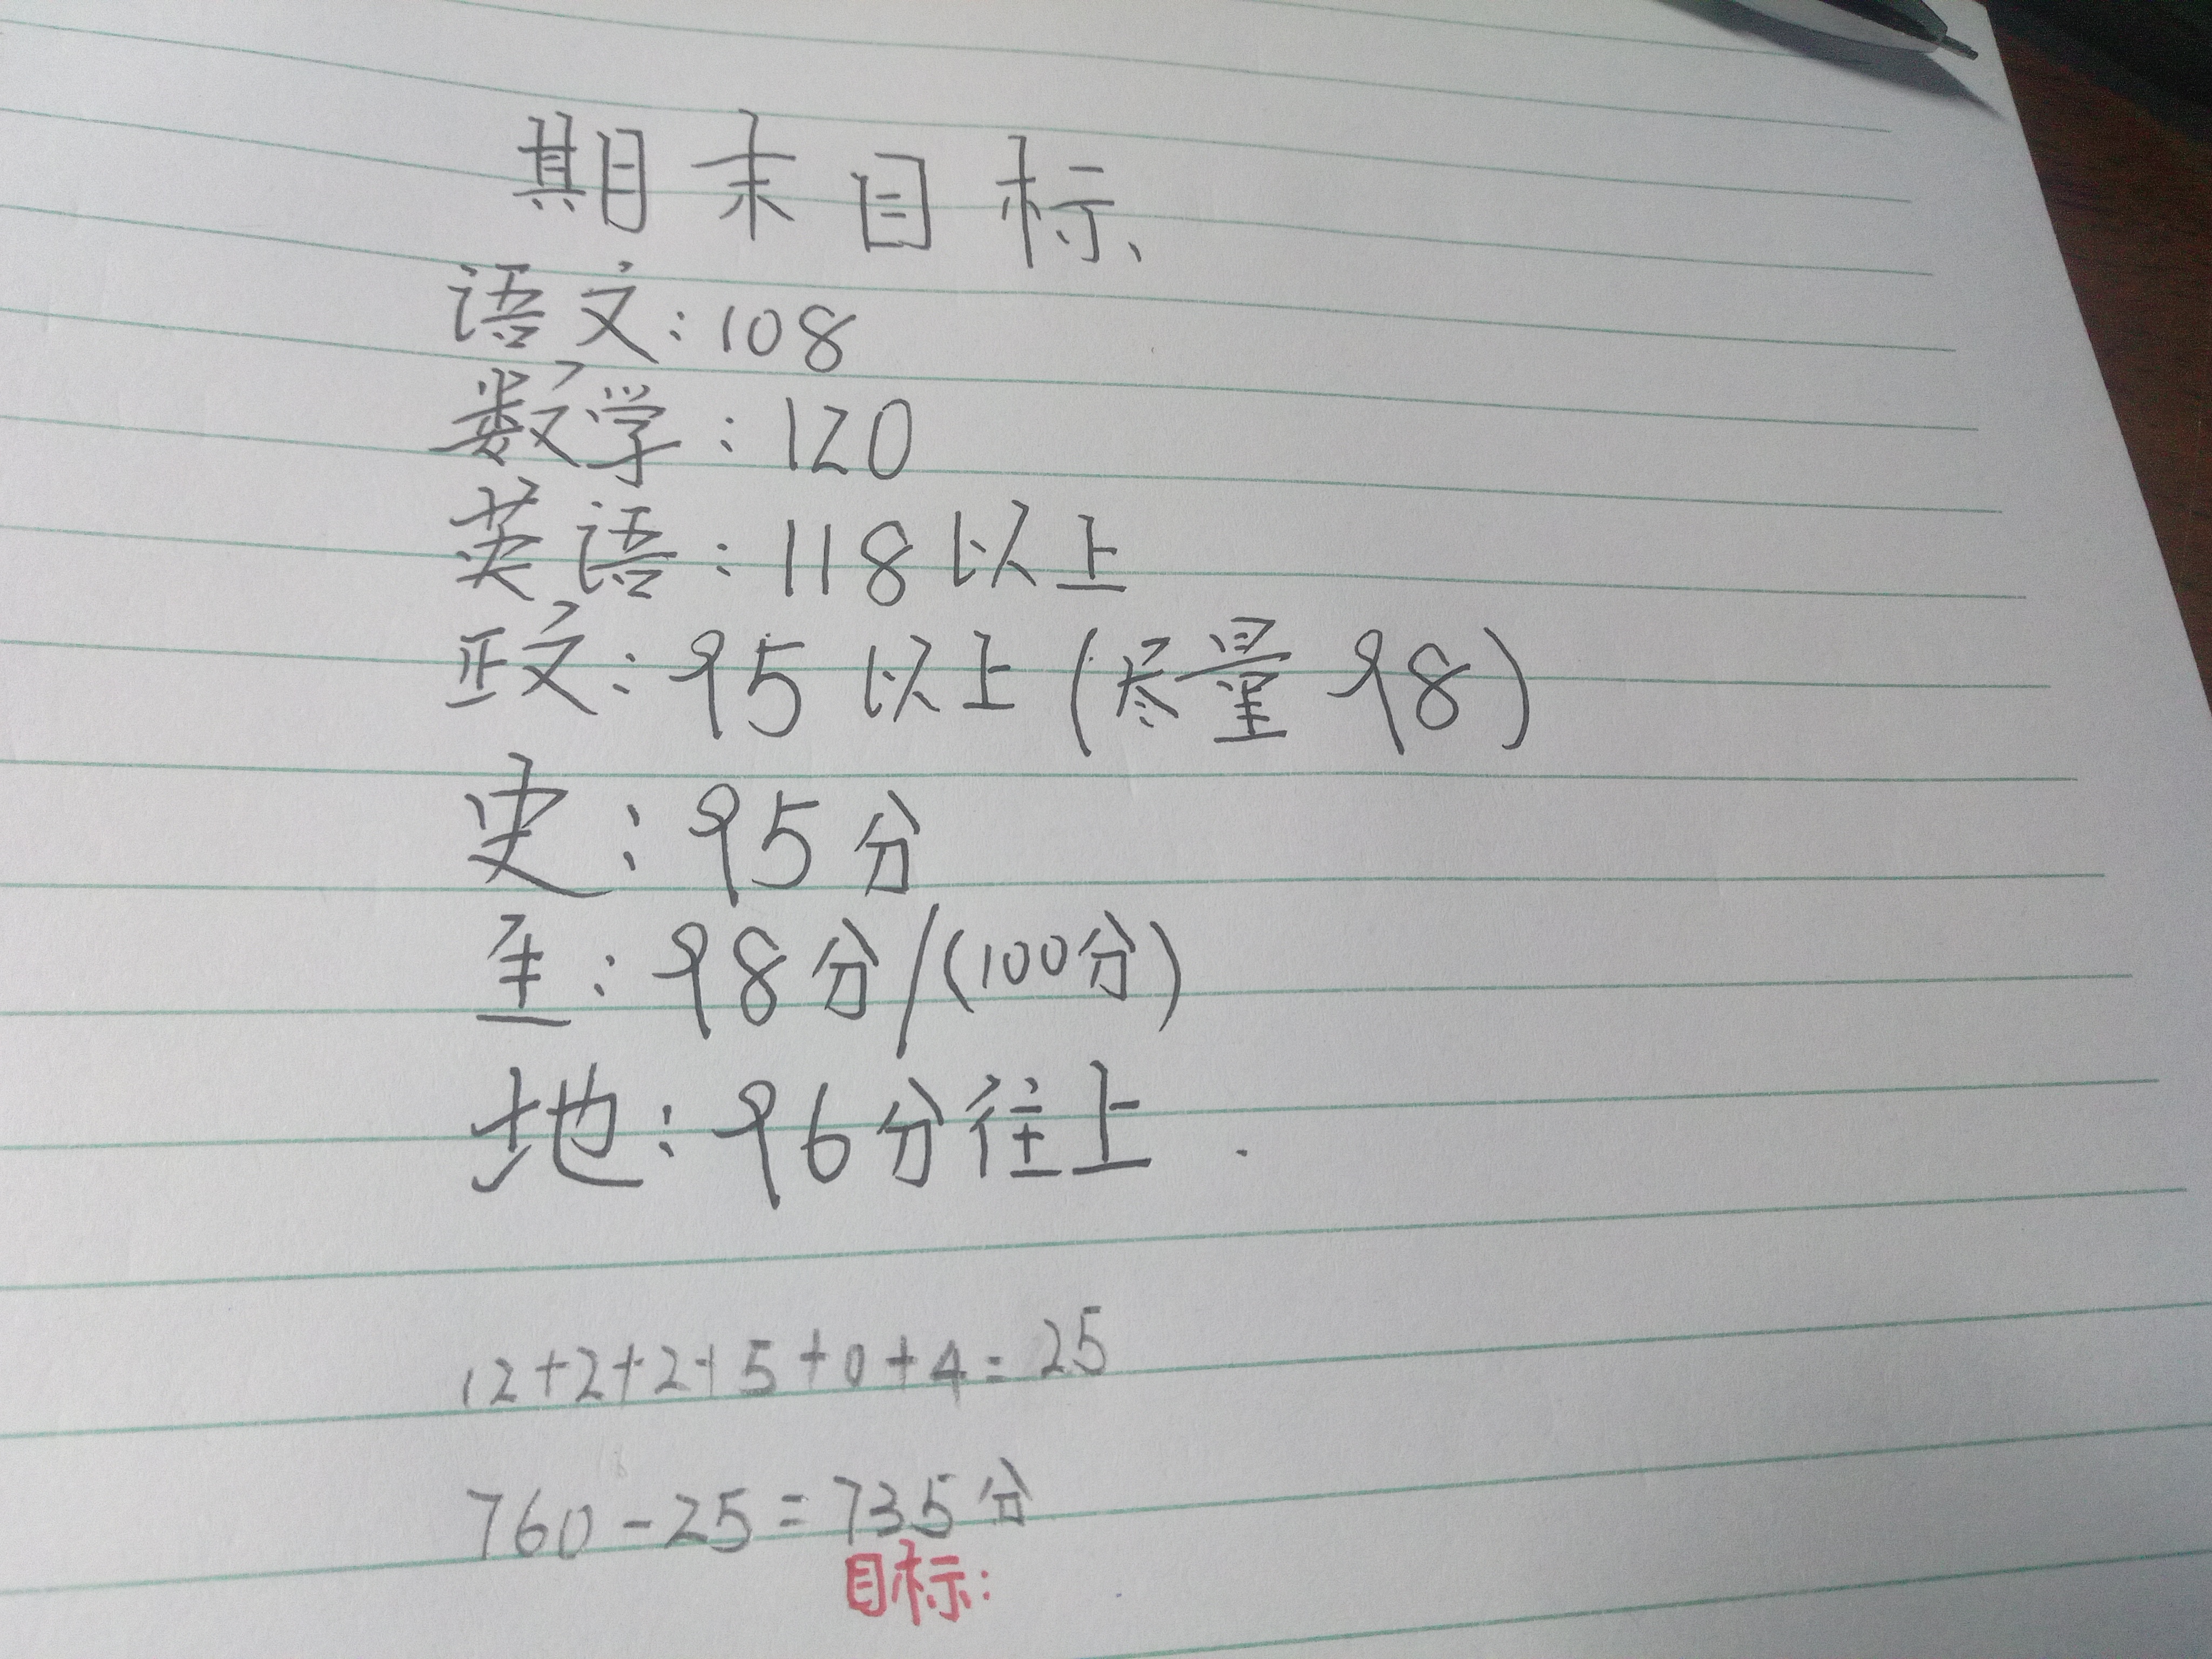 期末目标、
语文:108
数学:120
英语:118以上
政:95以上(尽量98)
史:95分
生:98分/(100分)
地:96分往上.
12+2+2+5+0+4=25
760-25=735分
目标: